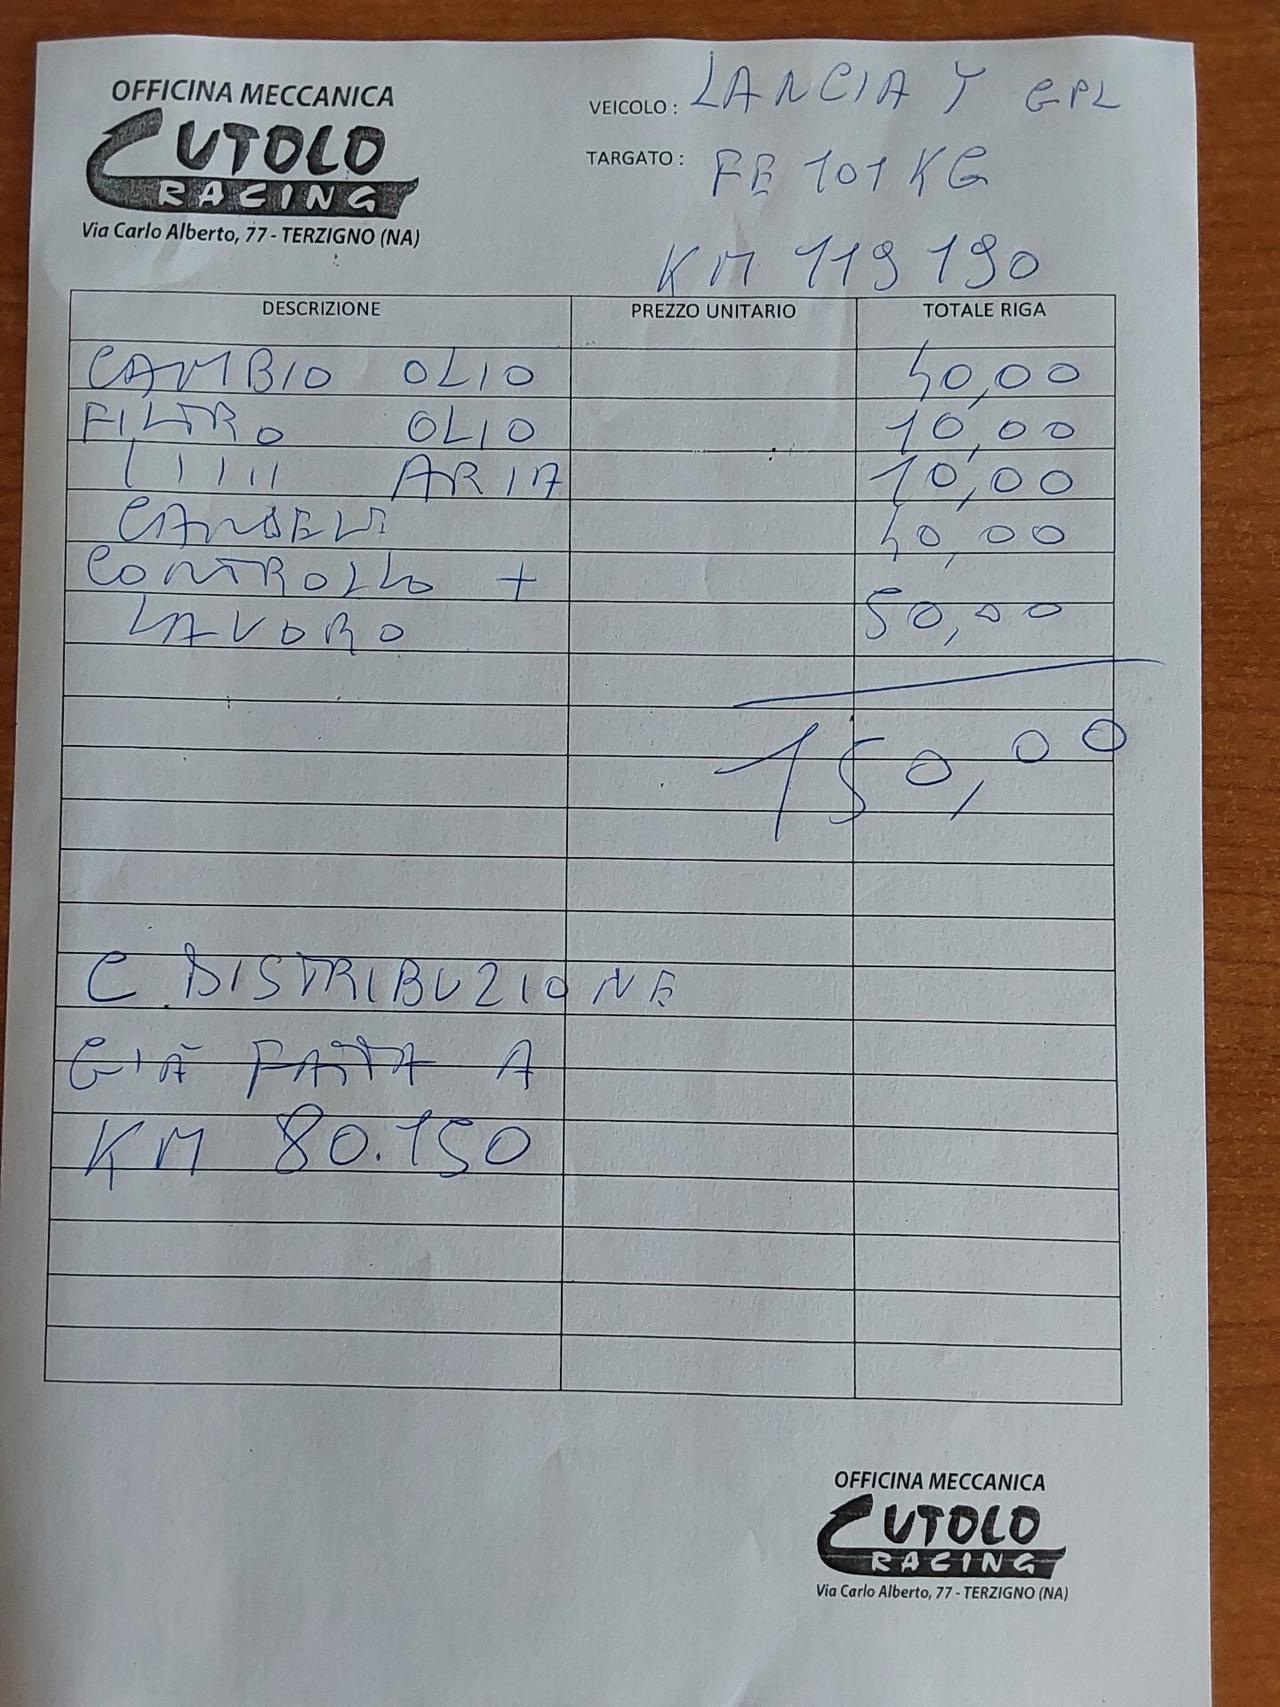 OFFICINA MECCANICA
CUTOLO
RACING
Via Carlo Alberto, 77 - TERZIGNO (NA)
VEICOLO : LANCIA Y GPL
TARGATO : FE 101 KG
KM 119 190
DESCRIZIONE PREZZO UNITARIO TOTALE RIGA
CAMBIO OLIO 40,00
FILTRO OLIO 10,00
ARIA 10,00
CANDELE 40,00
CONTROLLO +
LAVORO 50,00
150,00
C. DISTRIBUZIONE
GIÀ FATTA A
KM 80.150
OFFICINA MECCANICA
CUTOLO
RACING
Via Carlo Alberto, 77 - TERZIGNO (NA)